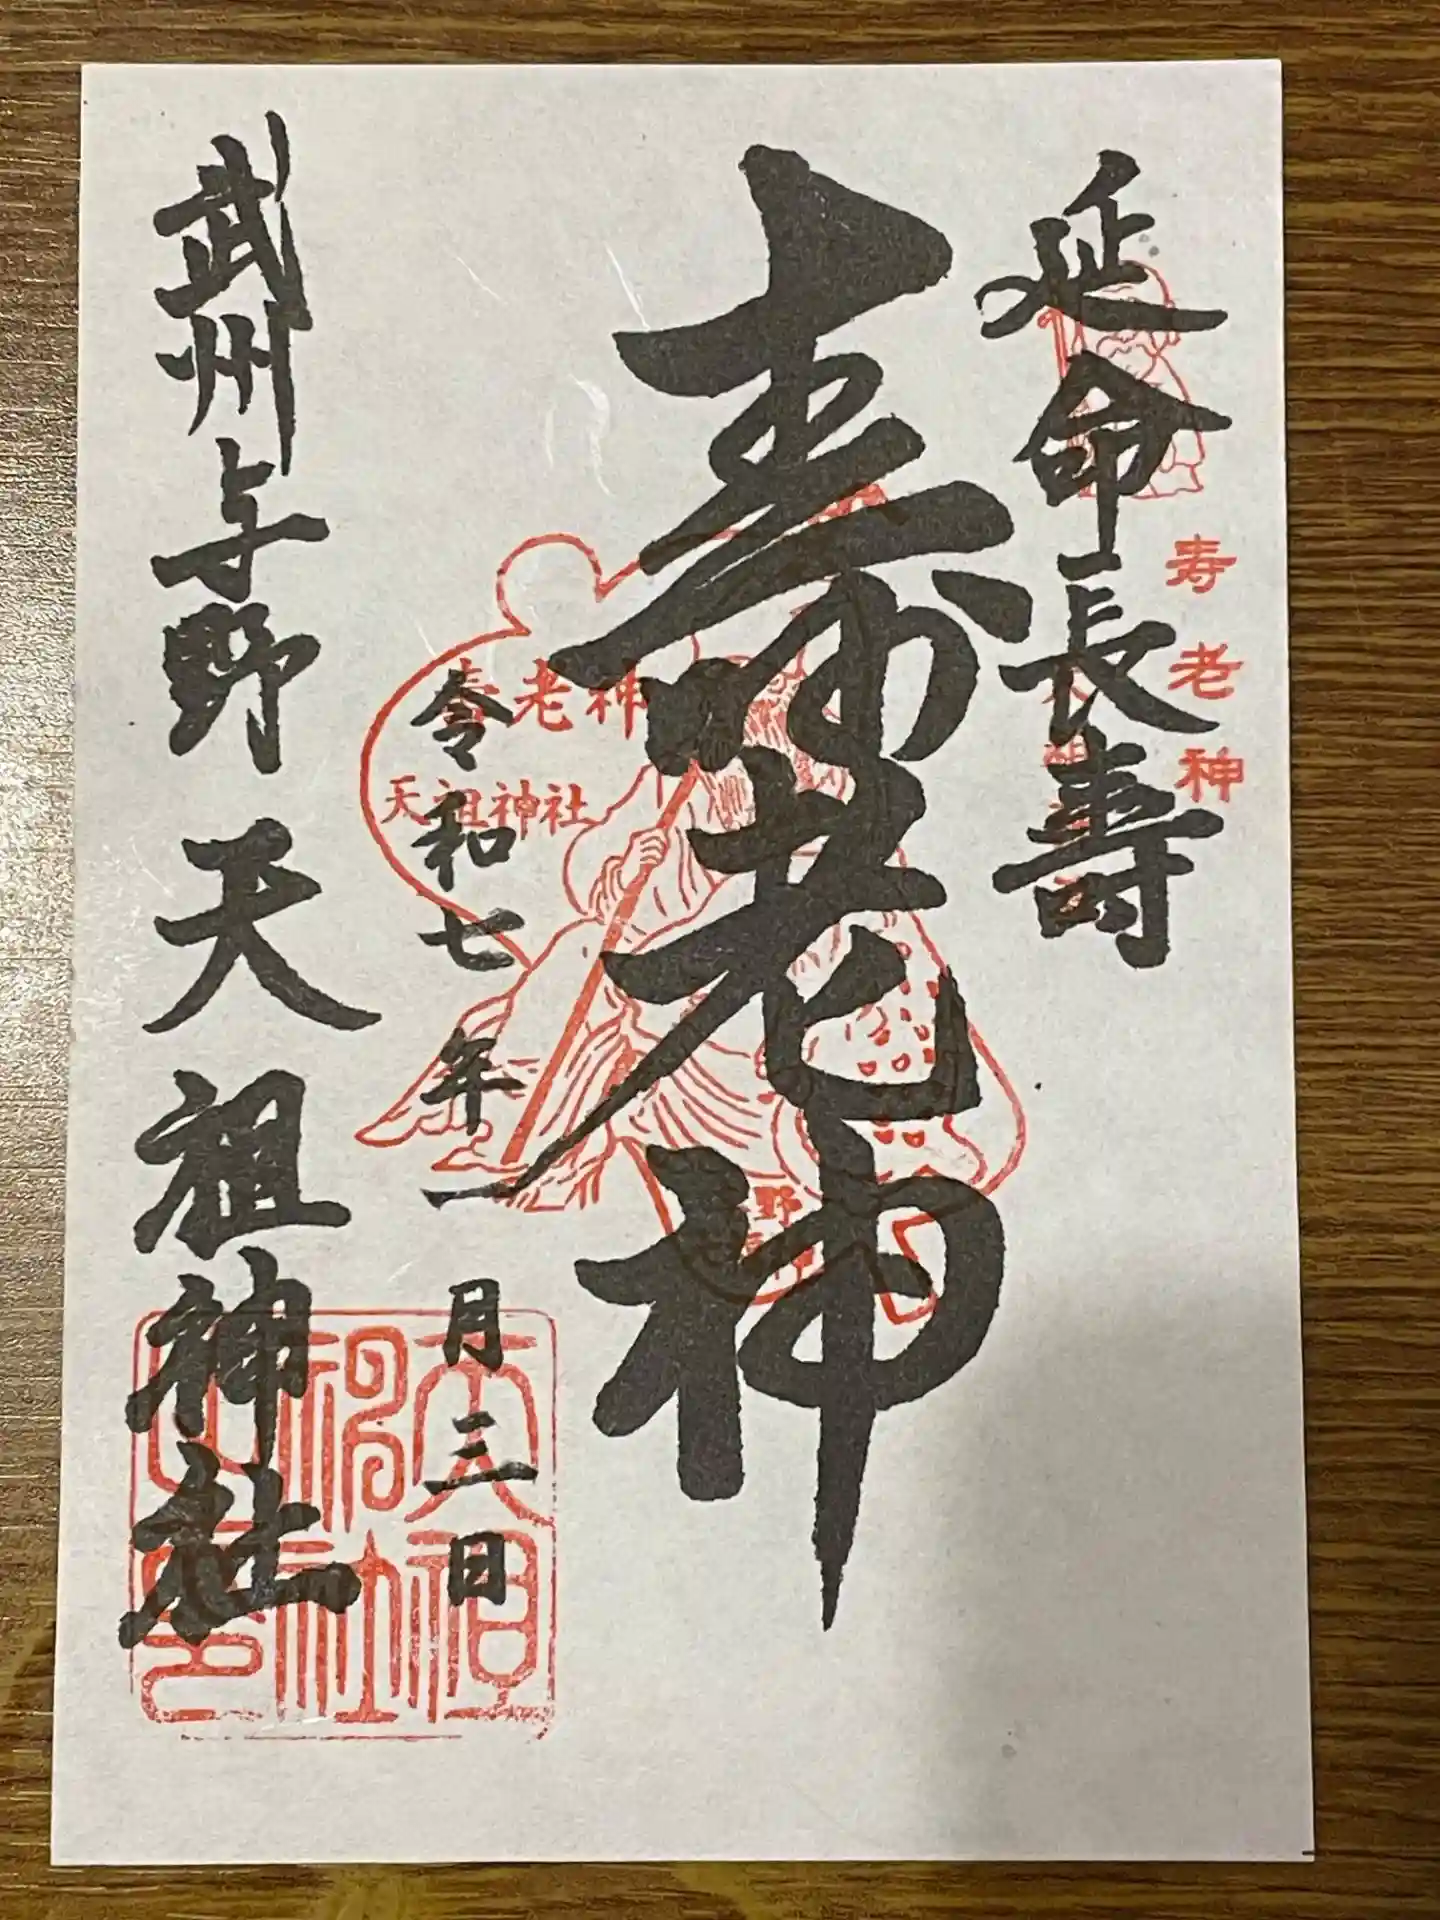 延命長壽
寿老神
寿老神
寿老神
天祖神社
令和七年一月三日
武州与野 天祖神社